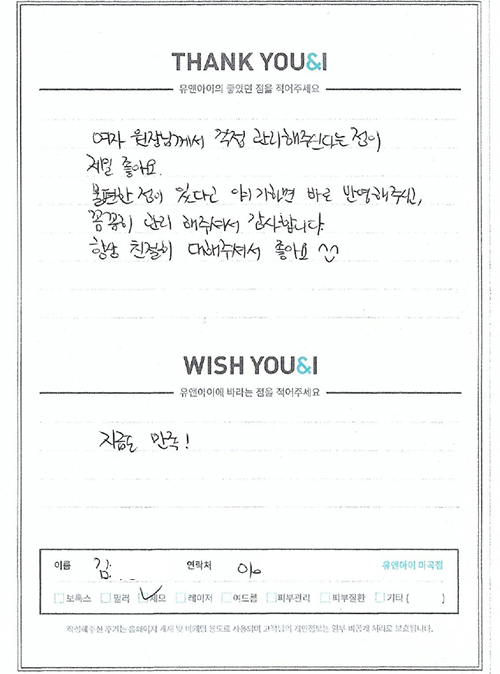 THANK YOU&I
유앤아이의 좋았던 점을 적어주세요
여자 원장님께서 직접 관리해주신다는 점이
제일 좋아요.
불편한 점이 있다고 얘기하면 바로 반영해주시고,
꼼꼼히 관리 해주셔서 감사합니다.
항상 친절히 대해주셔서 좋아요
WISH YOU&I
유앤아이에 바라는 점을 적어주세요
지금도 만족!
이름 김 연락처 010 유앤아이 마곡점
보톡스 필러 제모 레이저 여드름 피부관리 피부질환 기타 ( )
작성해주신 후기는 홈페이지 게재 및 마케팅 용도로 사용되며 고객님의 개인정보는 일부 비공개 처리로 보호됩니다.